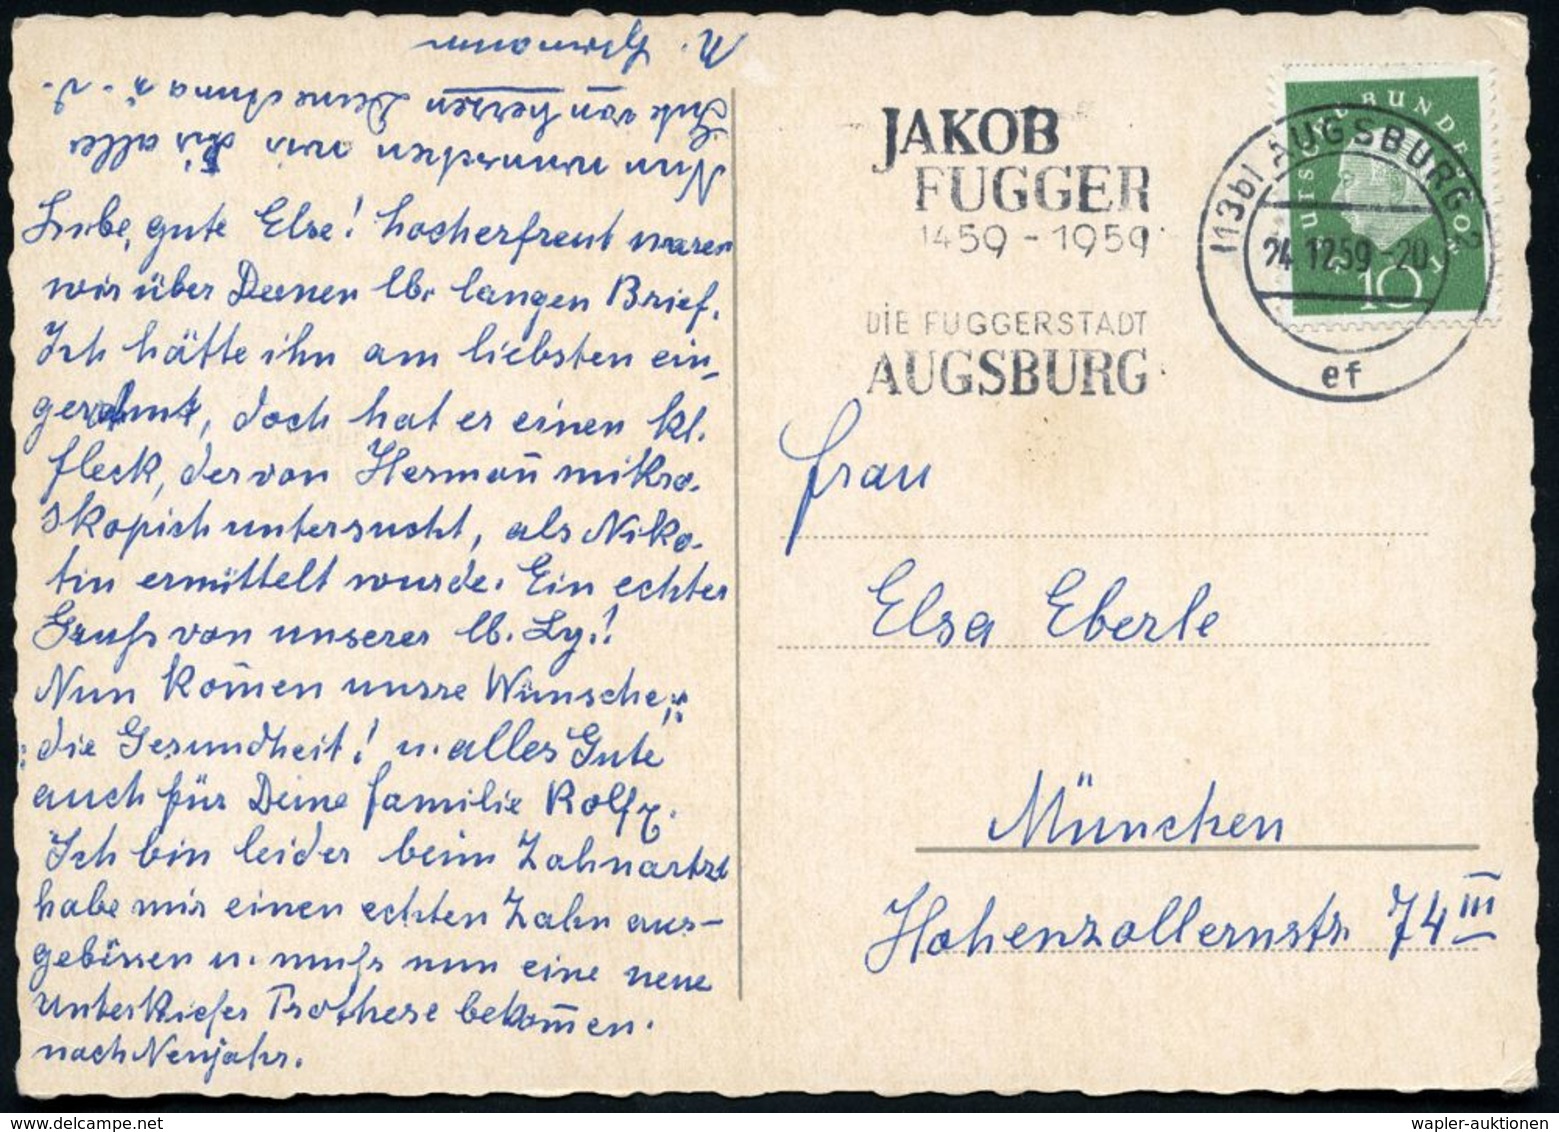 Liebe, gute Else! hocherfreut waren
wir über Deenen lb. langen Brief.
Ich hätte ihn am liebsten ein,
gerahmt, doch hat er einen kl.
fleck, der von Hermañ mikro-
skopisch untersucht, als Niko-
tin ermittelt wurde. Ein echter
Gruß von unserer lb. Ly.!
Nun kom̄en unsre Wünsche,:
: die Gesundheit! u. alles Gute
auch für Deine familie Rolf
Ich bin leider beim Zahnartzt
habe mir einen echten Zahn aus-
gebissen u. muß nun eine neue
Unterkiefer Prothese bekom̄en.
nach Neujahr.
Nun wünschen wir dir alles
Gute von herzen Deine Anna
u. Hermann
JAKOB
FUGGER
1459 - 1959
DIE FUGGERSTADT
AUGSBURG
(13b) AUGSBURG 2
24.12.59.-20
ef
DEUTSCHE BUNDESPOST
10
frau
Elsa Eberle
München
Hohenzollernstr. 74 III
wapler-auktionen